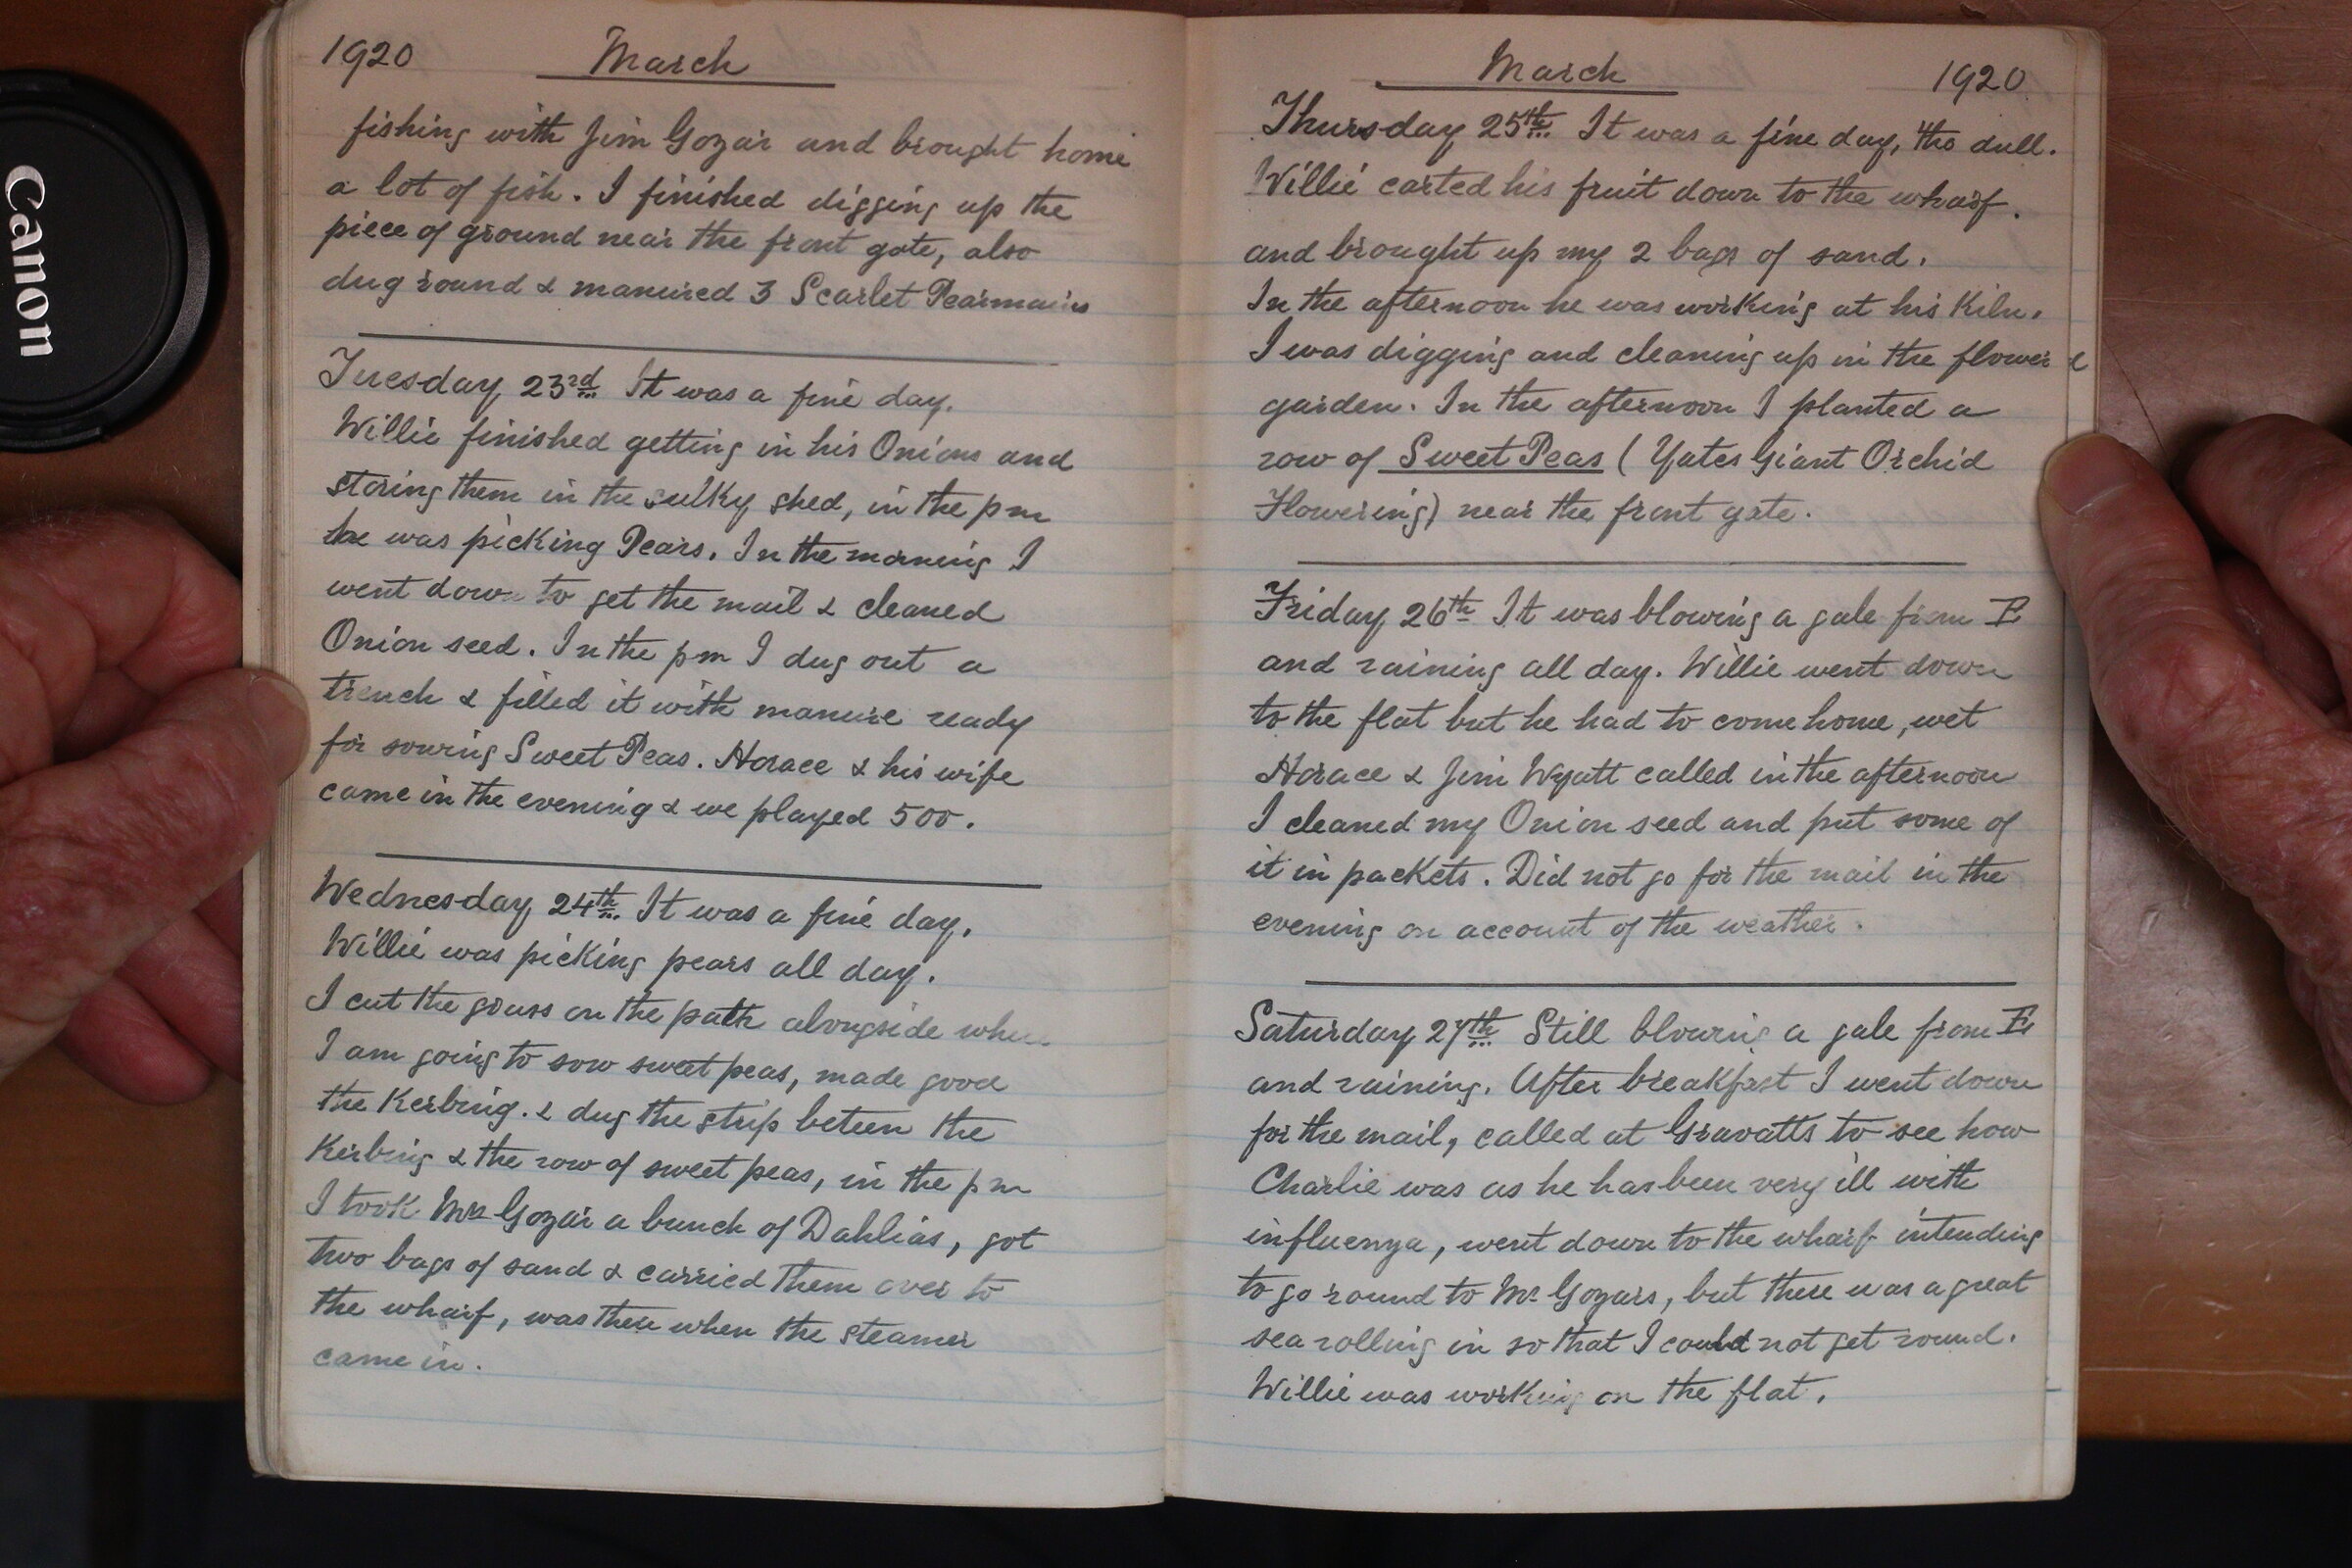 Canon
1920 March
fishing with Jim Gozar and brought home
a lot of fish. I finished digging up the
piece of ground near the front gate, also
dug round & manured 3 Scarlet Pearmains
Tuesday 23rd It was a fine day.
Willie finished getting in his Onions and
storing them in the sulky shed, in the pm
he was picking Pears. In the morning I
went down to get the mail & cleaned
Onion seed. In the pm I dug out a
trench & filled it with manure ready
for sowing Sweet Peas. Horace & his wife
came in the evening & we played 500.
Wednesday 24th It was a fine day.
Willie was picking pears all day.
I cut the grass on the path alongside where
I am going to sow sweet peas, made good
the Kerbing. & dug the strip beteen the
Kerbing & the row of sweet peas, in the pm
I took Mrs Gozar a bunch of Dahlias, got
two bags of sand & carried them over to
the wharf, was there when the steamer
came in.
March 1920
Thursday 25th It was a fine day, tho dull.
Willie carted his fruit down to the wharf.
and brought up my 2 bags of sand.
In the afternoon he was working at his Kiln.
I was digging and cleaning up in the flower
garden. In the afternoon I planted a
row of Sweet Peas (Yates Giant Orchid
Flowering) near the front gate.
Friday 26th It was blowing a gale from E
and raining all day. Willie went down
to the flat but he had to come home, wet
Horace & Jim Wyatt called in the afternoon
I cleaned my Onion seed and put some of
it in packets. Did not go for the mail in the
evening on account of the weather.
Saturday 27th Still blowing a gale from E
and raining. After breakfast I went down
for the mail, called at Gravatts to see how
Charlie was as he has been very ill with
influenza, went down to the wharf intending
to go round to Mr Gozars, but there was a great
sea rolling in so that I could not get round.
Willie was working on the flat.